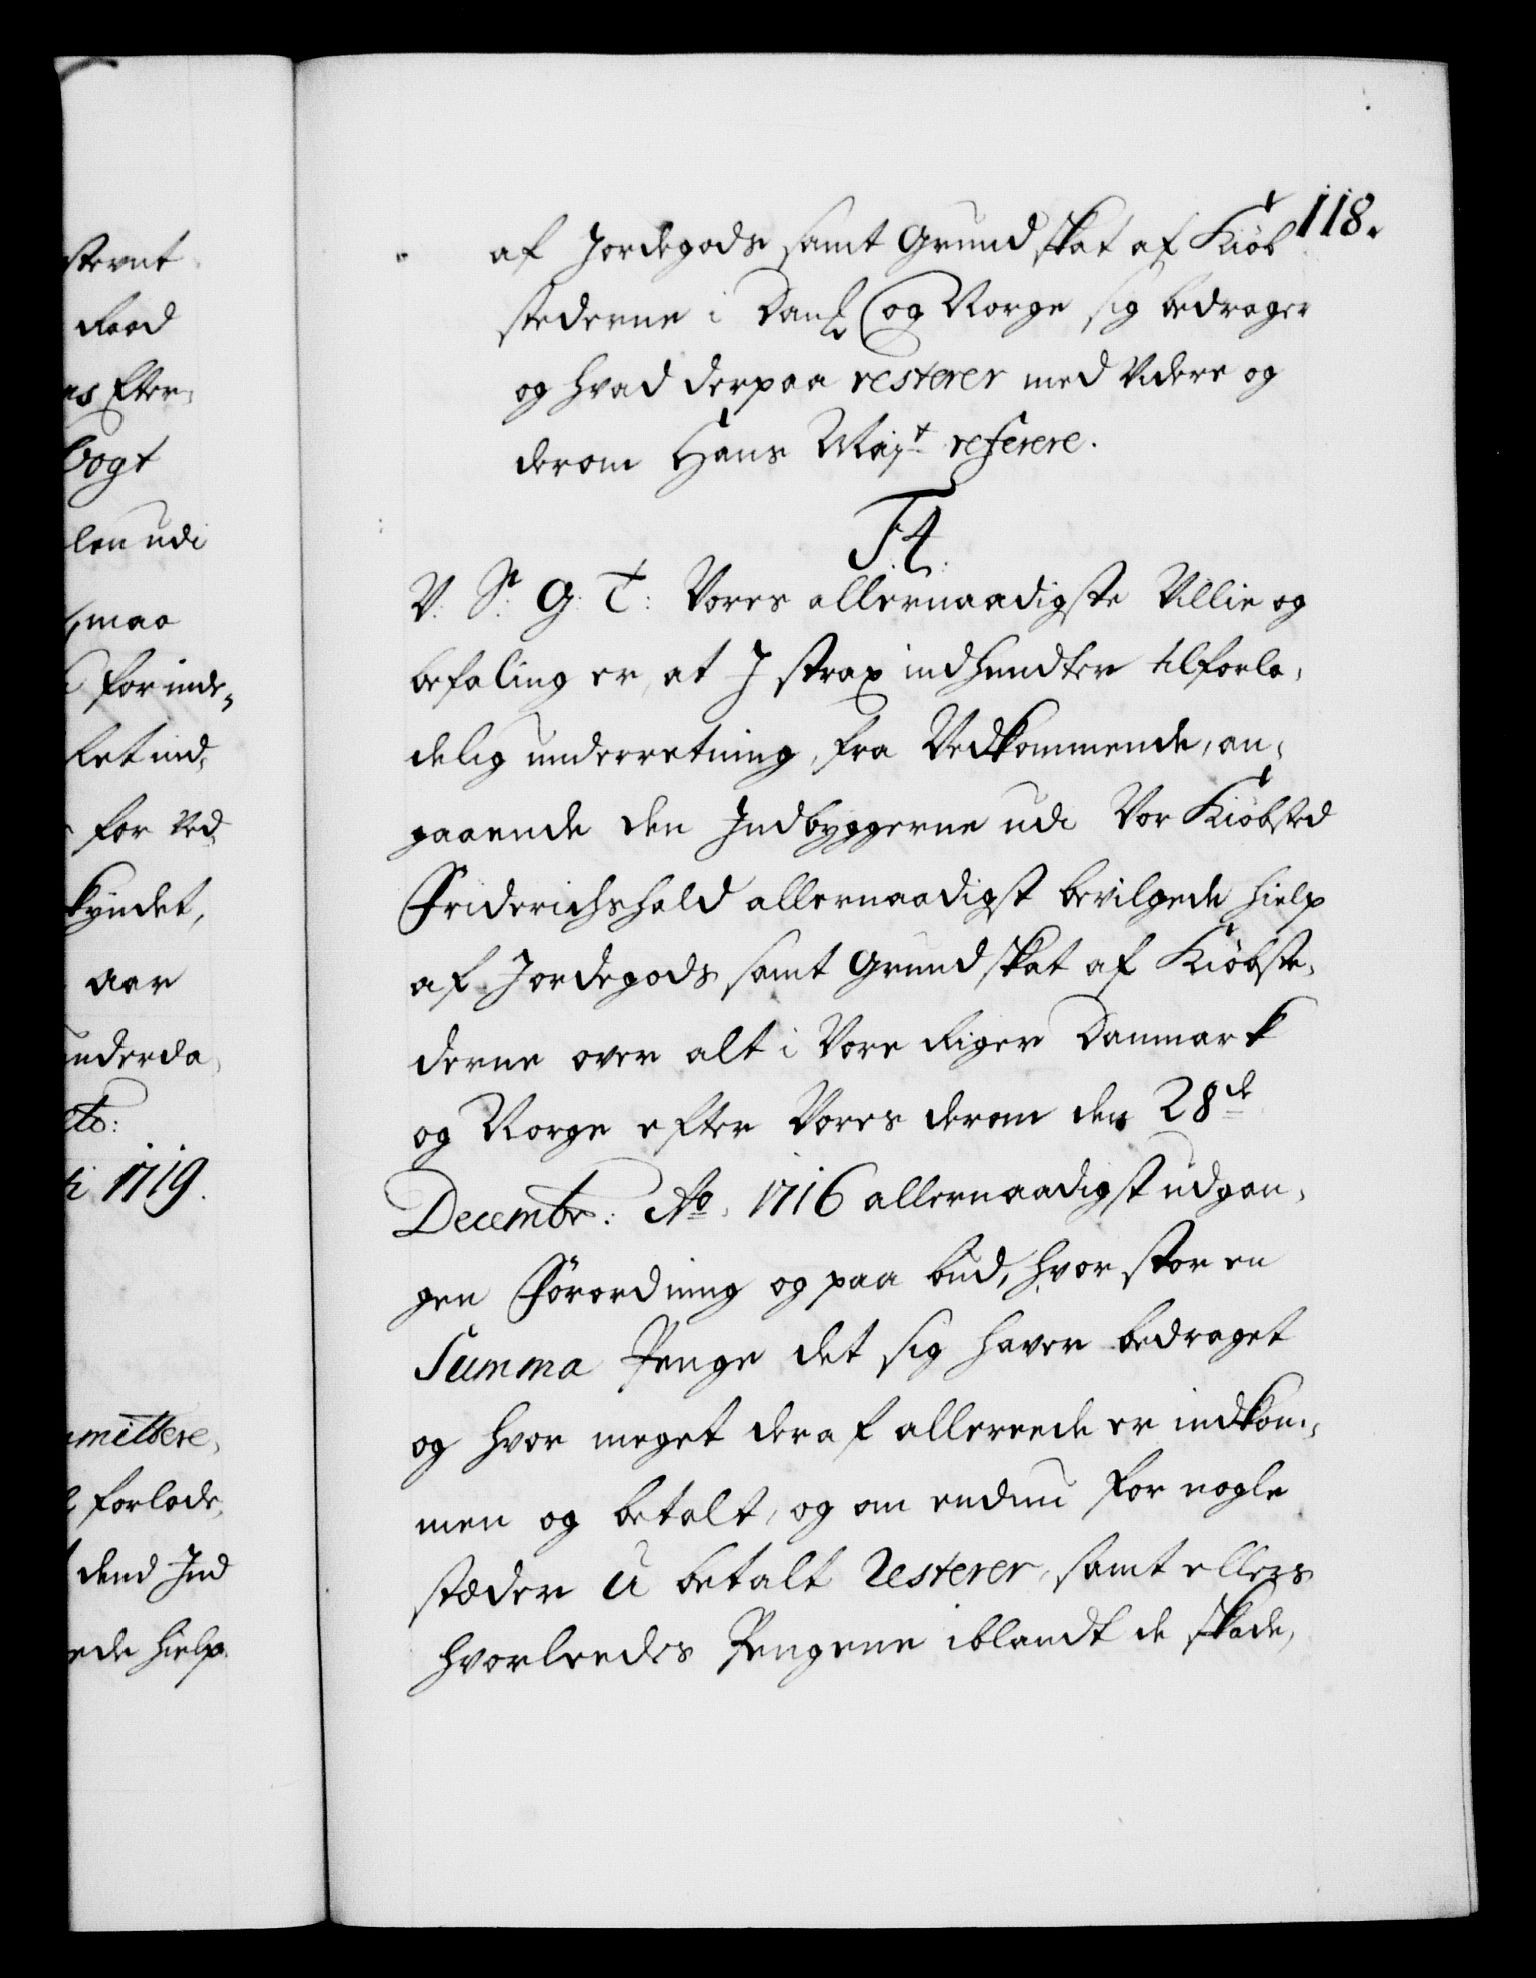 118.
af Jordegods samt Grundskat af Kiöb
stederne i Dank og Norge sig bedrager
og hvad derpaa resterer med Videre og
derom Hans Mayt referere.
F. 4.
V: S: G: T: Vores allernaadigste Villie og
befaling er, at I strax indhendter tilforla-
delig underretning, fra Vedkommende, an-
gaaende den Indbyggerne udi Vor Kiöbsted
Friderichshald allernaadigst bevilgede hielp
af Jordegods samt Grundskat af Kiöbste-
derne over alt i Vore Riger Danmark
og Norge efter Vores derom den 28de
Decembr: Ao. 1716 allernaadigst udgan-
gen Forordning og paabud, hvor stor en
Summa Penge det sig haver bedraget
og hvor meget deraf allereede er indkom-
men og betalt, og om endnu for nogle
stæder U betalt Resterer, samt ellers
hvorleedes Pengene iblandt de skade,
sternt
Raad
ns Efter-
Vogt
len udi
maa
for inde-
let ind-
for Ved
kyndet,
aar
underda
etc:
ti 1719.
mittere,
forlade,
dend Ind
ede hielp